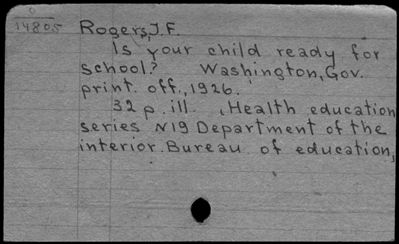 0
14805
Rogers, J.F.
Is your child ready for
school? Washington, Gov.
print. off., 1926.
32 p. ill. (Health education
series N19 Department of the
interior. Bureau of education,